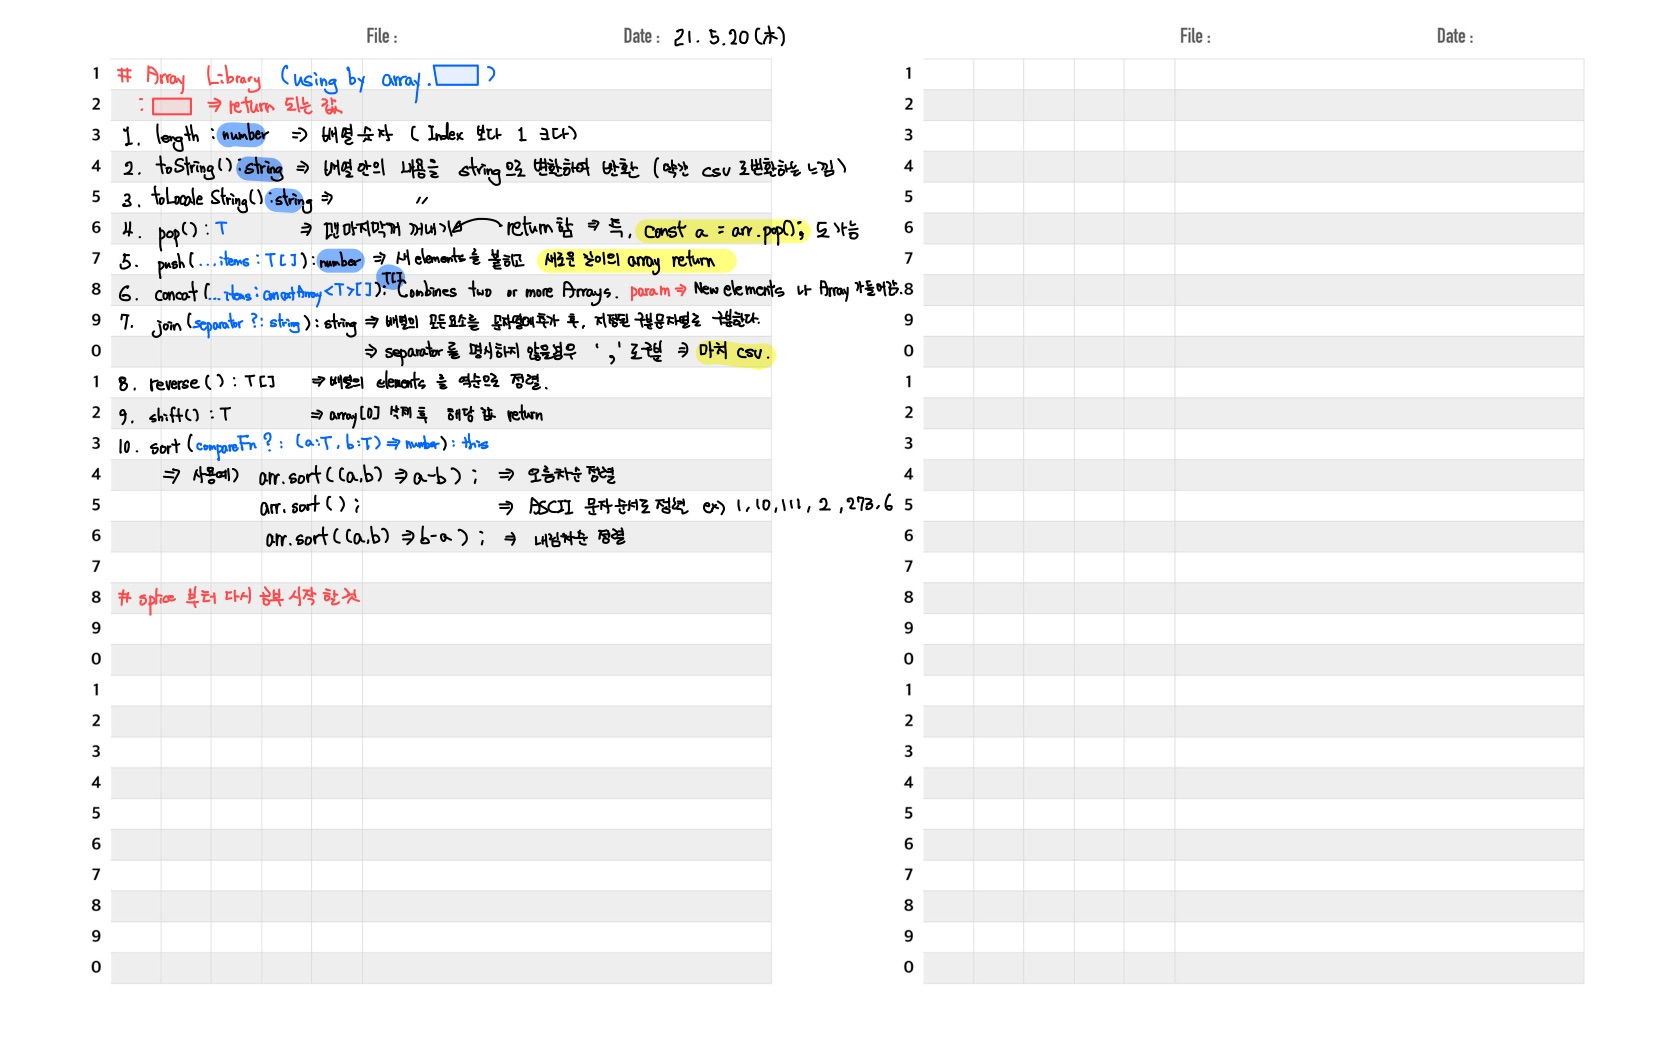 File :
Date : 21. 5. 20 (木)
1 # Array Library (using by array. )
2 : ⇒ return 되는 값
3 1. length : number ⇒ 배열 숫자 ( Index 보다 1 크다)
4 2. toString() : string ⇒ 배열 안의 내용을 string으로 변환하여 반환 (약간 csv 로변환하는 느낌)
5 3. toLocale String() : string ⇒ 〃
6 4. pop() : T ⇒ 맨마지막꺼 꺼내기 return함 ⇒ 즉, const a = arr.pop(); 도가능
7 5. push(...items : T[]) : number ⇒ 새 elements를 붙히고 새로운 길이의 array return
8 6. concat (...items : ConcatArray<T>[]) : T[] Combines two or more Arrays. param ⇒ New elements 나 Array 가들어감.
9 7. join (separator ? : string) : string ⇒ 배열의 모든요소를 문자열에추가 후, 지정된 구분문자열로 구분한다.
0 ⇒ separator를 명시하지 않을경우 ',' 로구분 ⇒ 마치 csv.
1 8. reverse() : T[] ⇒ 배열의 elements 를 역순으로 정렬.
2 9. shift() : T ⇒ array[0] 삭제 후 해당 값 return
3 10. sort (compareFn ? : (a:T, b:T) ⇒ number) : this
4 ⇒ 사용예) arr.sort((a,b) ⇒ a-b) ; ⇒ 오름차순 정렬
5 arr.sort() ; ⇒ ASCII 문자 순서로 정렬 ex) 1, 10, 111, 2, 273, 6
6 arr.sort((a,b) ⇒ b-a ) ; ⇒ 내림차순 정렬
7
8 # splice 부터 다시 공부 시작 할 것
9
0
1
2
3
4
5
6
7
8
9
0
File :
Date :
1
2
3
4
5
6
7
8
9
0
1
2
3
4
5
6
7
8
9
0
1
2
3
4
5
6
7
8
9
0